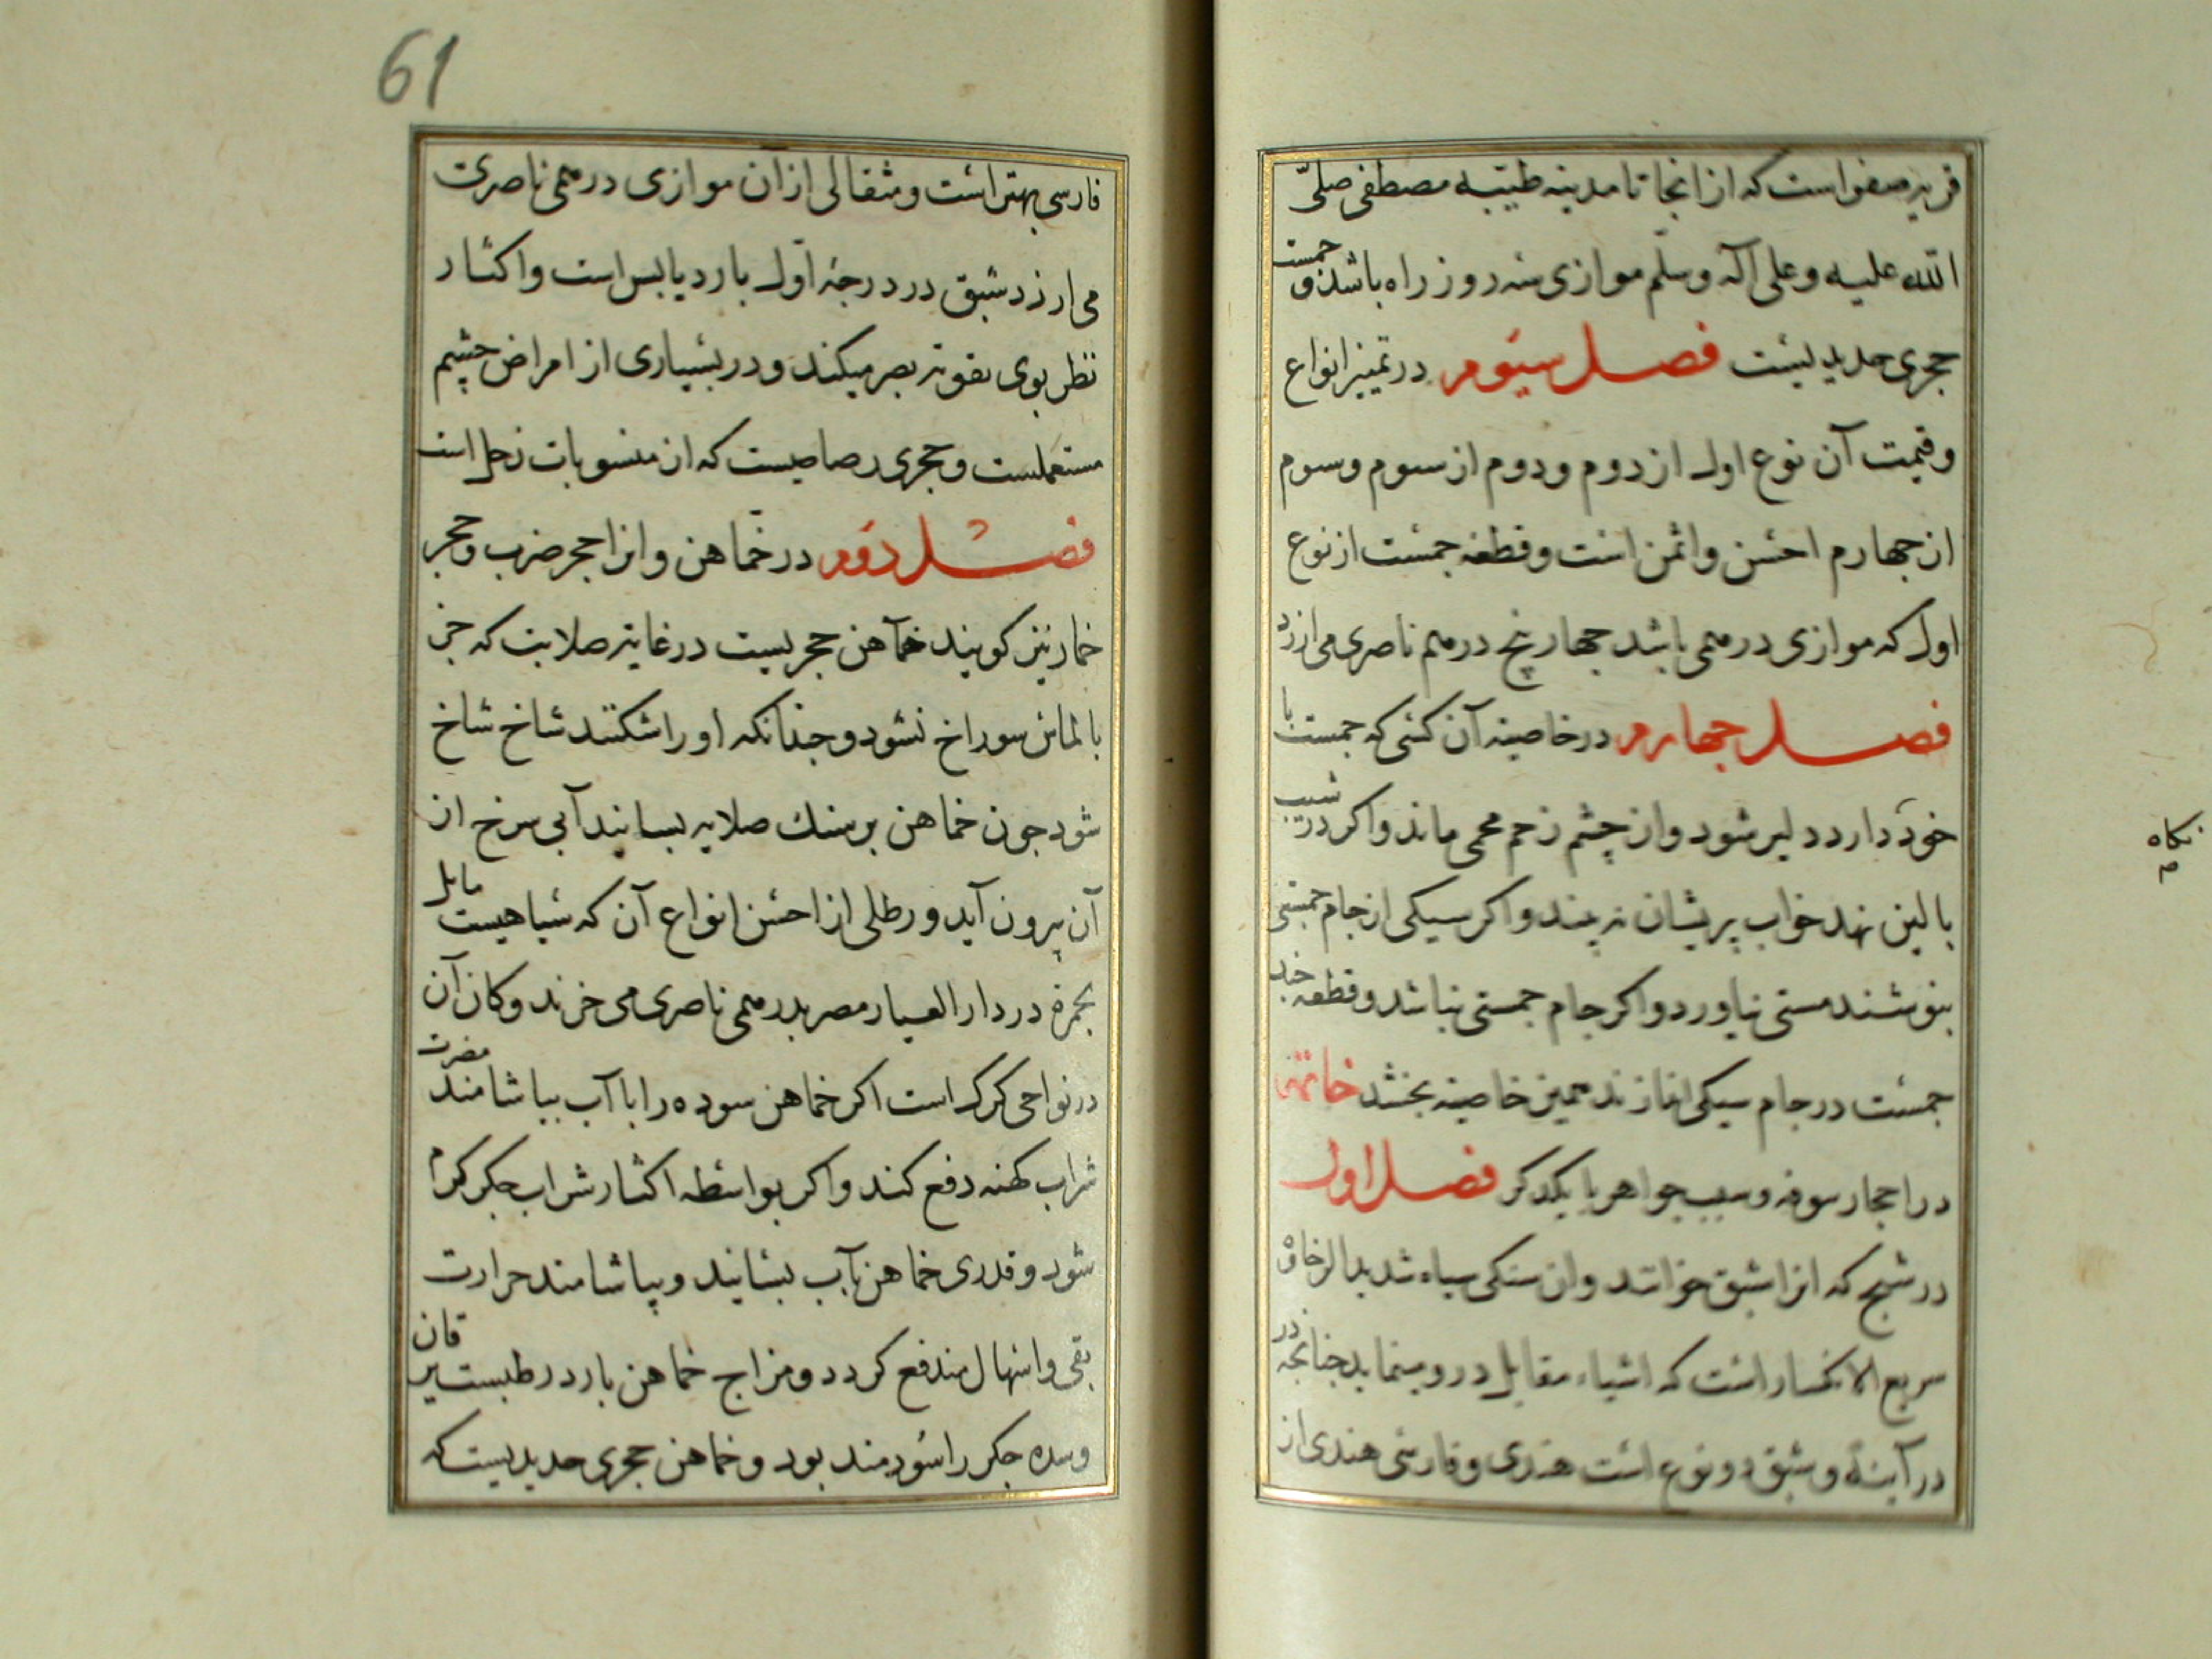 قریه صفواست که از انجا تا مدینه طیبه مصطفی صلی
الله علیه و علی آله وسلم موازی سه روز راه باشد و جمست
حجری حدیدیست فصل سیوم در تمییز انواع
و قیمت آن نوع اول از دوم و دوم از سوم و سوم
از چهارم احسن و اثمن است و قطعه جمست از نوع
اول که موازی درهمی باشد چهار پنج درهم ناصری می ارزد
فصل چهارم در خاصیه آن کسی که جمست با
خود دارد دلیر شود و از چشم زخم محمی ماند و اکر در شب
بالین نهد خواب پریشان نه بیند و اکر سیکی از جام جمستی
بنوشند مستی نیاورد و اکر جام جمستی نباشد و قطعه چند
جمست در جام سیکی اندازند همین خاصیه بخشد خاتمه
در احجار سوقه و سبب جواهر با یکدکر فصل اول
در شبج که انرا شبق خوانند و ان سنکی سیاه شدید الرخاوة
سریع الانکسار است که اشیاء مقابل در و مینماید چنانچه در
در آینه و شبق دو نوع است هندی و فارسی هندی از
نکاه
م
61
فارسی بهتر است و مثقالی از ان موازی درهمی ناصری
می ارزد شبق در درجه اول بارد یابس است و اکثار
نظر بوی تقویة بصر میکند و در بسیاری از امراض چشم
مستعملست و حجری رصاصیست که از منسوبات زحل است
فصل دوم در خماهن و انرا حجر ضرب و حجر
خمار نیز کویند خماهن حجریست در غایة صلابت که جز
بالماس سوراخ نشود و چنانکه او را شکنند شاخ شاخ
شود چون خماهن بر سنك صلایه بسایند آبی سرخ از
آن بیرون آید و رطلی از احسن انواع آن که سیاهیست مایل
بحمرة در دار العیار مصر بدرهمی ناصری می خرند و کان آن
در نواحی کرك است اکر خماهن سوده را با آب بیاشامند مضرت
شراب کهنه دفع کند و اکر بواسطه اکثار شراب جکر کرم
شود و قدری خماهن بآب بسایند و بیاشامند حرارت
بقی و اسهال مندفع کردد و مزاج خماهن بارد رطبست یرقان
و سده جکر را سودمند بود و خماهن حجری حدیدیست که